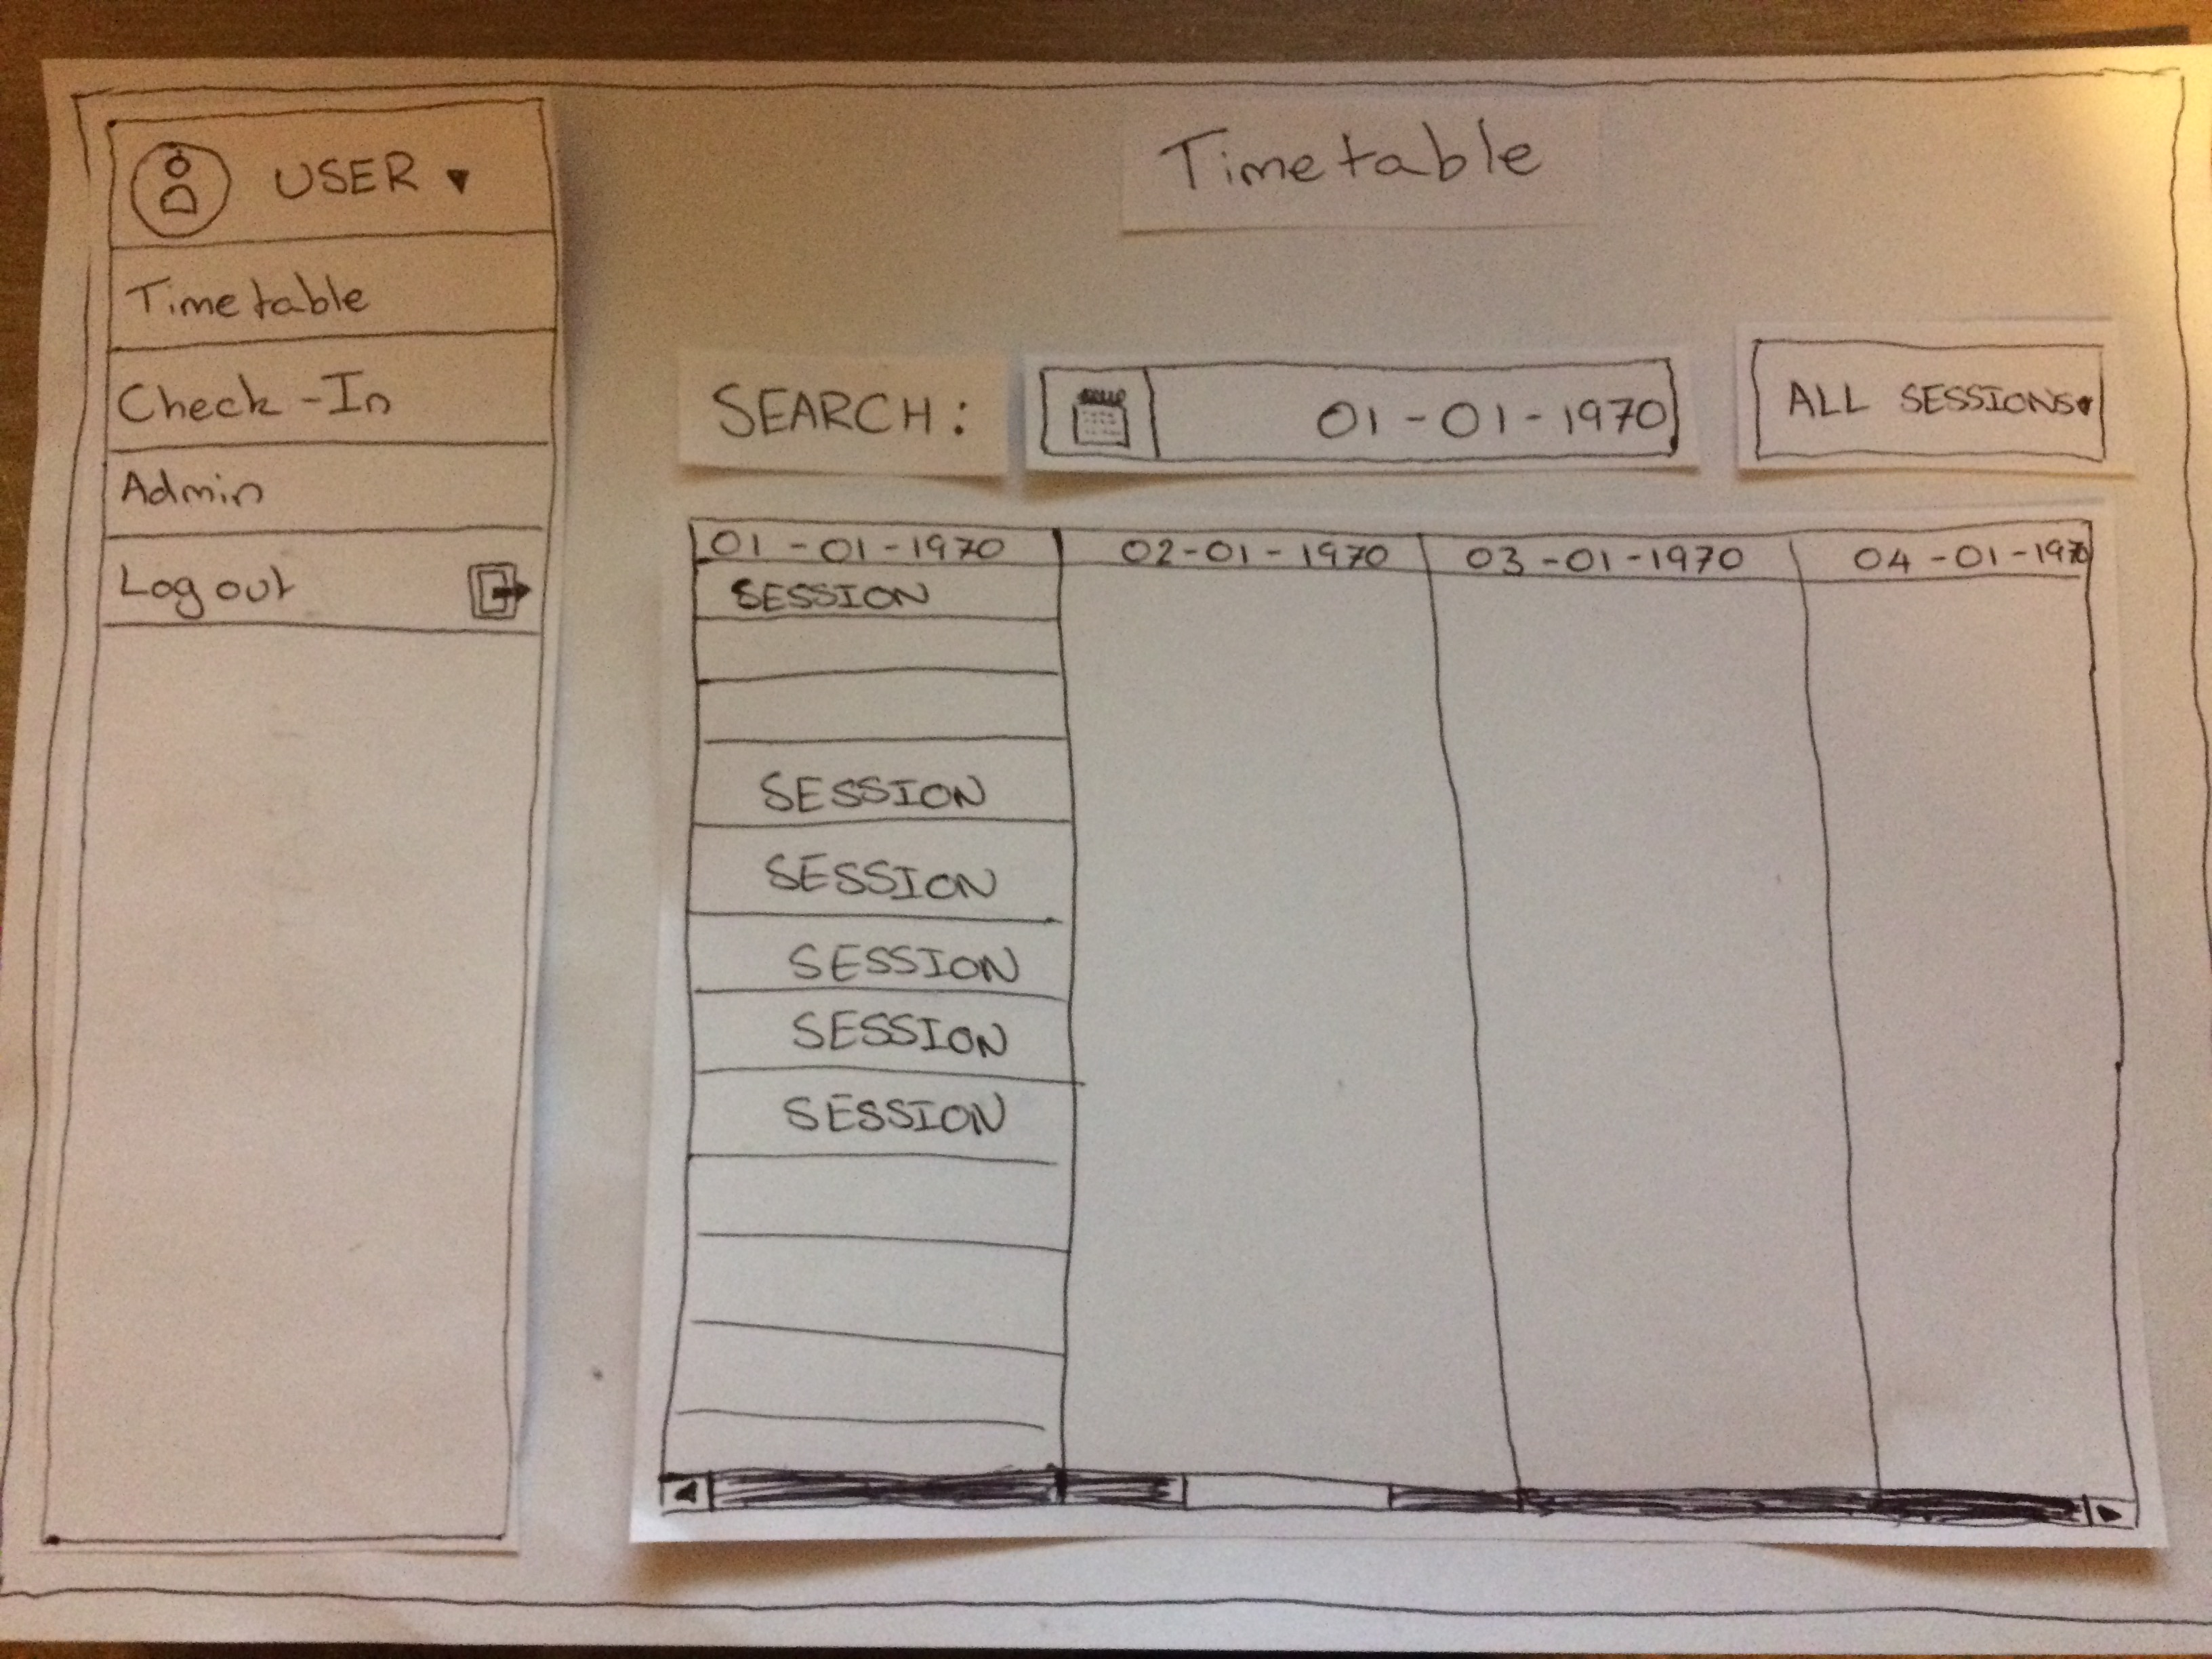 USER
Timetable
Check-In
Admin
Log out
Timetable
SEARCH: 01-01-1970 ALL SESSIONS
01-01-1970 02-01-1970 03-01-1970 04-01-1970
SESSION
SESSION
SESSION
SESSION
SESSION
SESSION